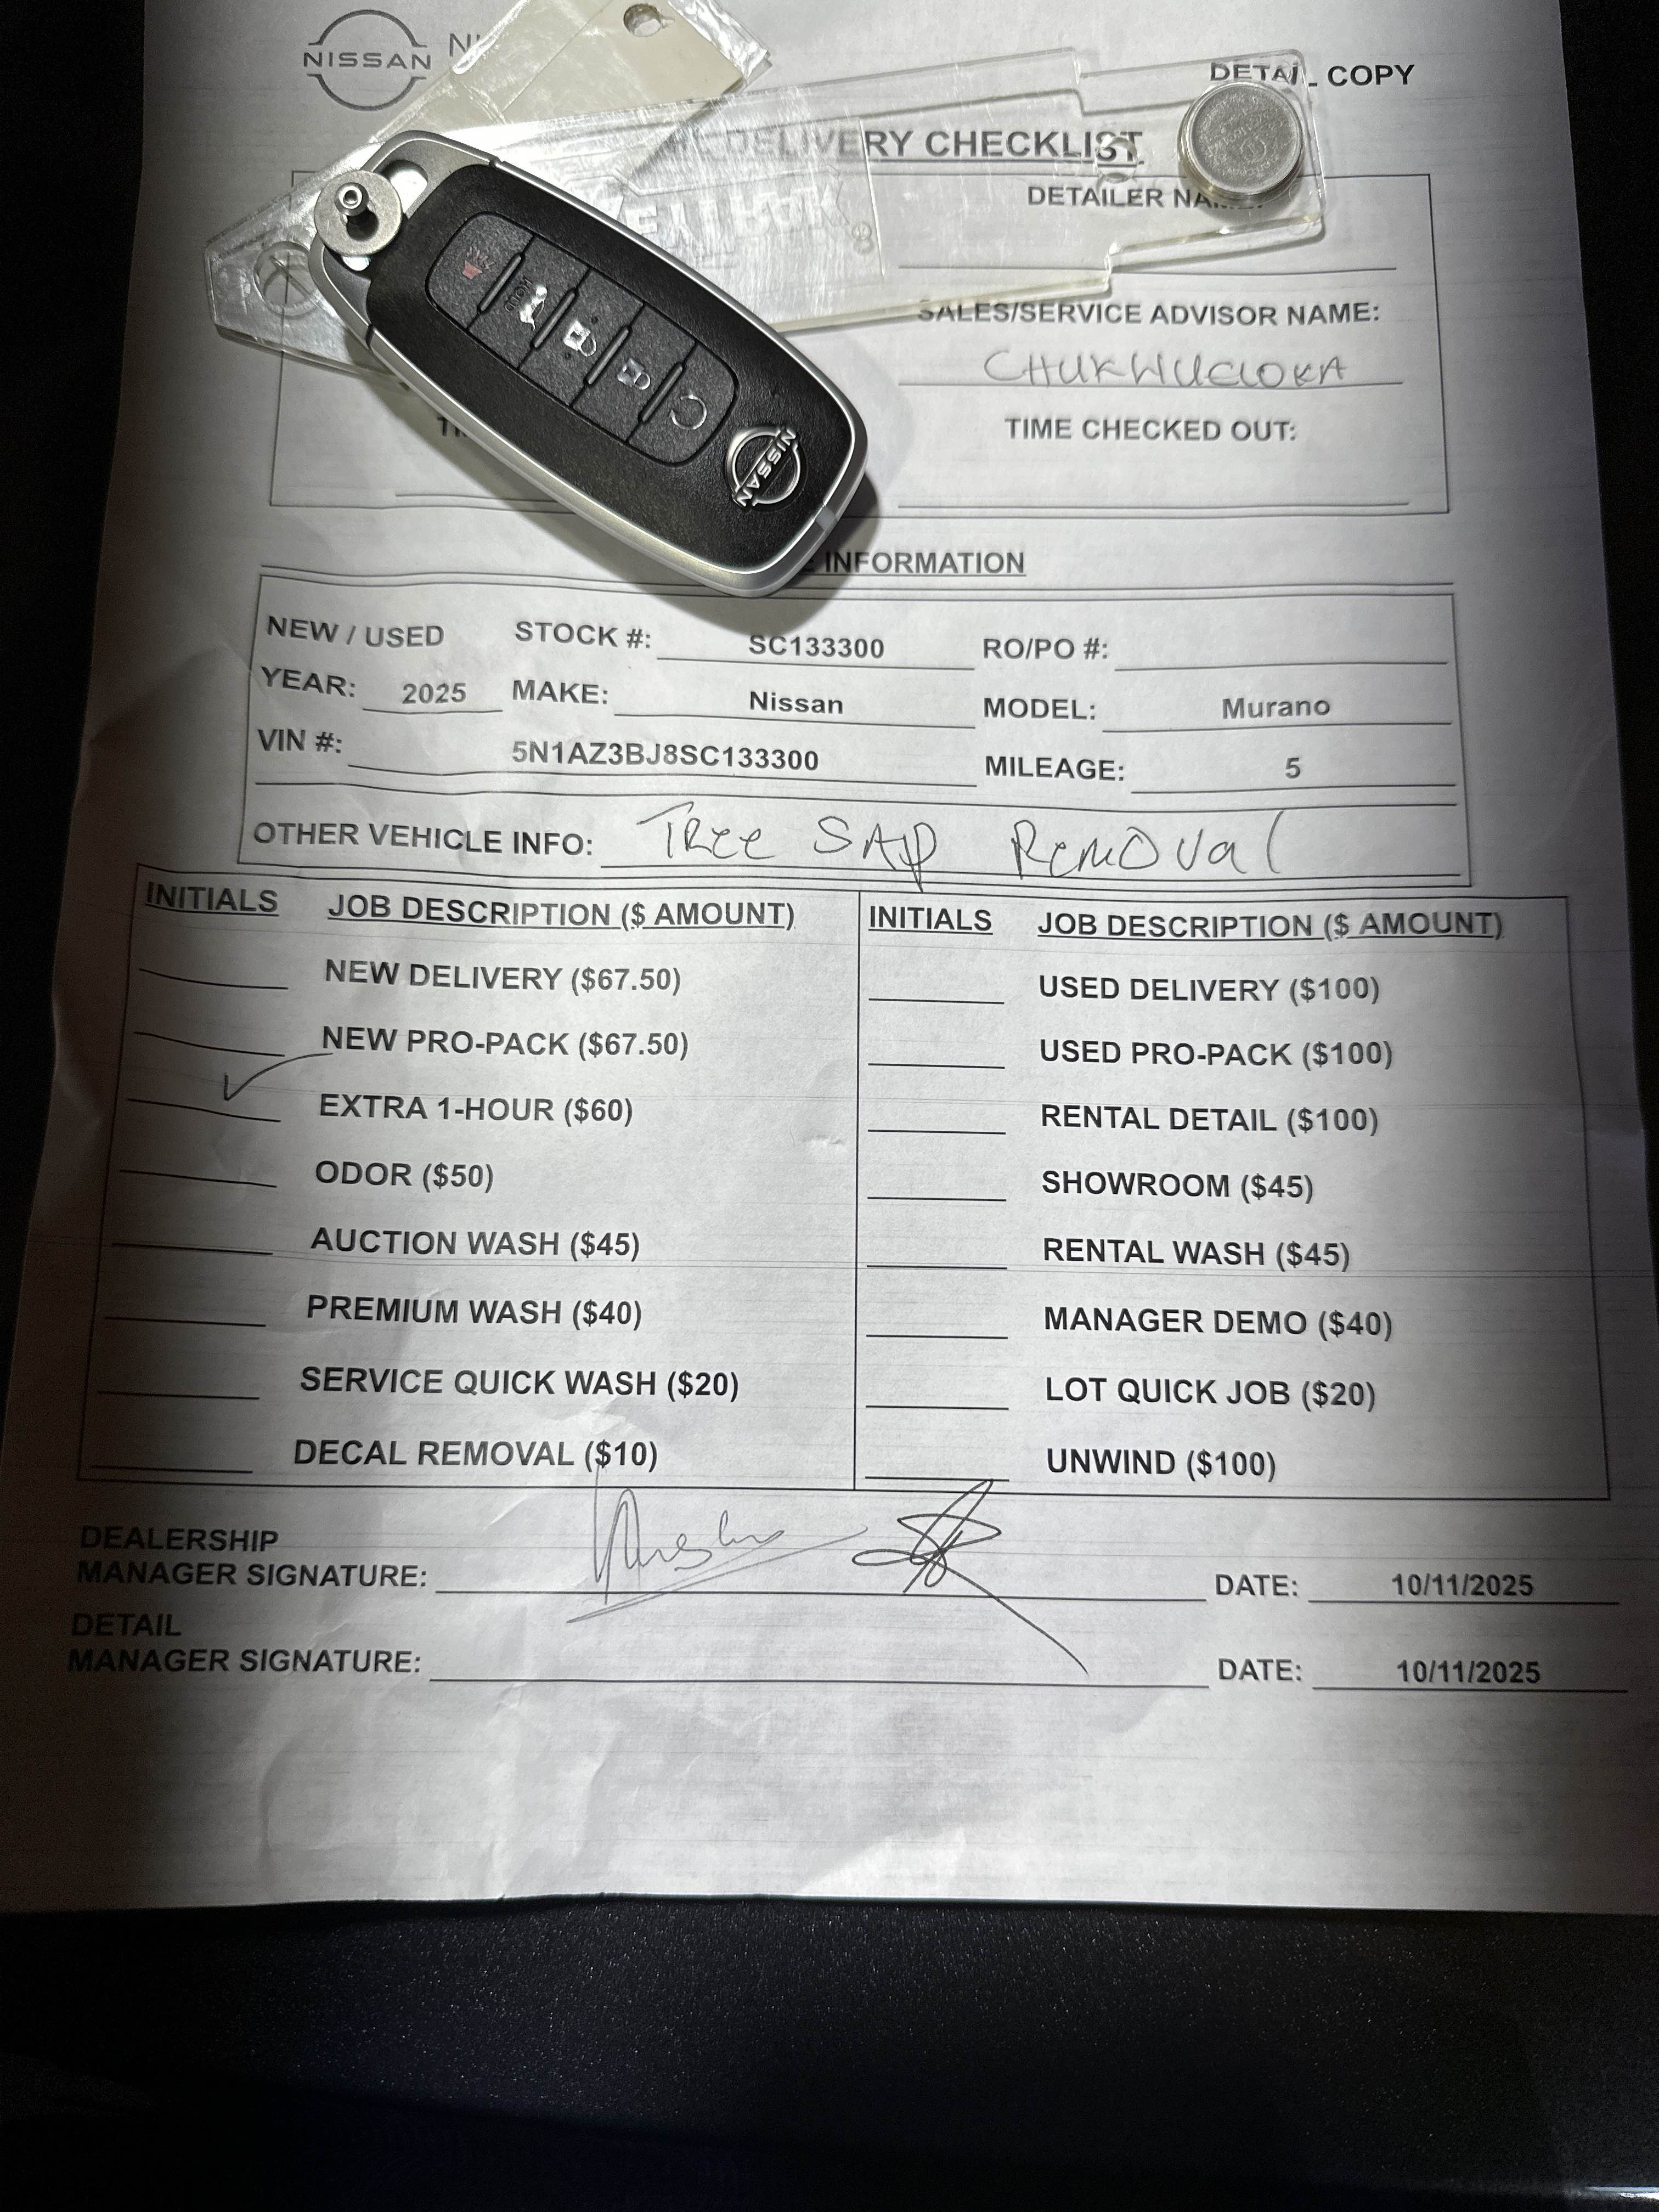 NISSAN
DETAIL COPY
DELIVERY CHECKLIST
DETAILER NAME:
SALES/SERVICE ADVISOR NAME:
CHUKWUELOKA
TIME CHECKED OUT:
NISSAN
INFORMATION
NEW / USED STOCK #: SC133300 RO/PO #:
YEAR: 2025 MAKE: Nissan MODEL: Murano
VIN #: 5N1AZ3BJ8SC133300 MILEAGE: 5
OTHER VEHICLE INFO: Tree SAP Removal
INITIALS JOB DESCRIPTION ($ AMOUNT) INITIALS JOB DESCRIPTION ($ AMOUNT)
NEW DELIVERY ($67.50) USED DELIVERY ($100)
NEW PRO-PACK ($67.50) USED PRO-PACK ($100)
EXTRA 1-HOUR ($60) RENTAL DETAIL ($100)
ODOR ($50) SHOWROOM ($45)
AUCTION WASH ($45) RENTAL WASH ($45)
PREMIUM WASH ($40) MANAGER DEMO ($40)
SERVICE QUICK WASH ($20) LOT QUICK JOB ($20)
DECAL REMOVAL ($10) UNWIND ($100)
DEALERSHIP
MANAGER SIGNATURE: DATE: 10/11/2025
DETAIL
MANAGER SIGNATURE: DATE: 10/11/2025